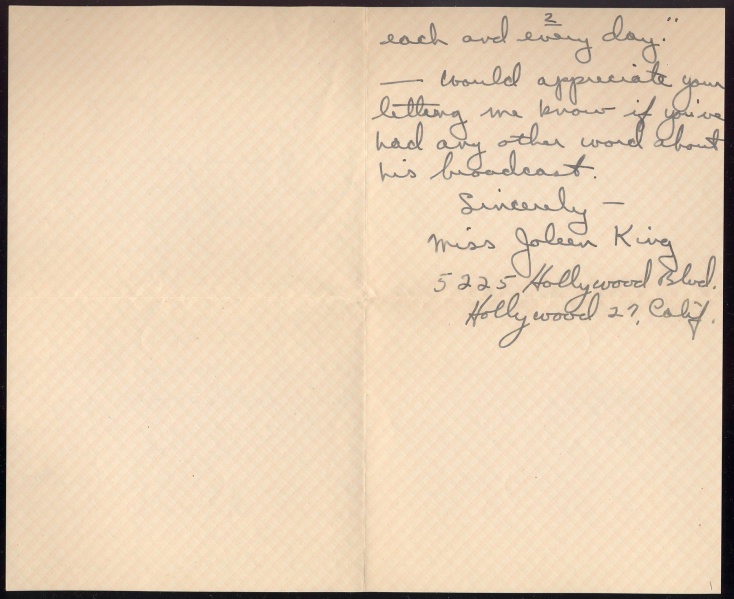 2
each and every day."
— would appreciate your
letting me know if you've
had any other word about
his broadcast.
Sincerely —
Miss Joleen King
5225 Hollywood Blvd.
Hollywood 27, Calif.